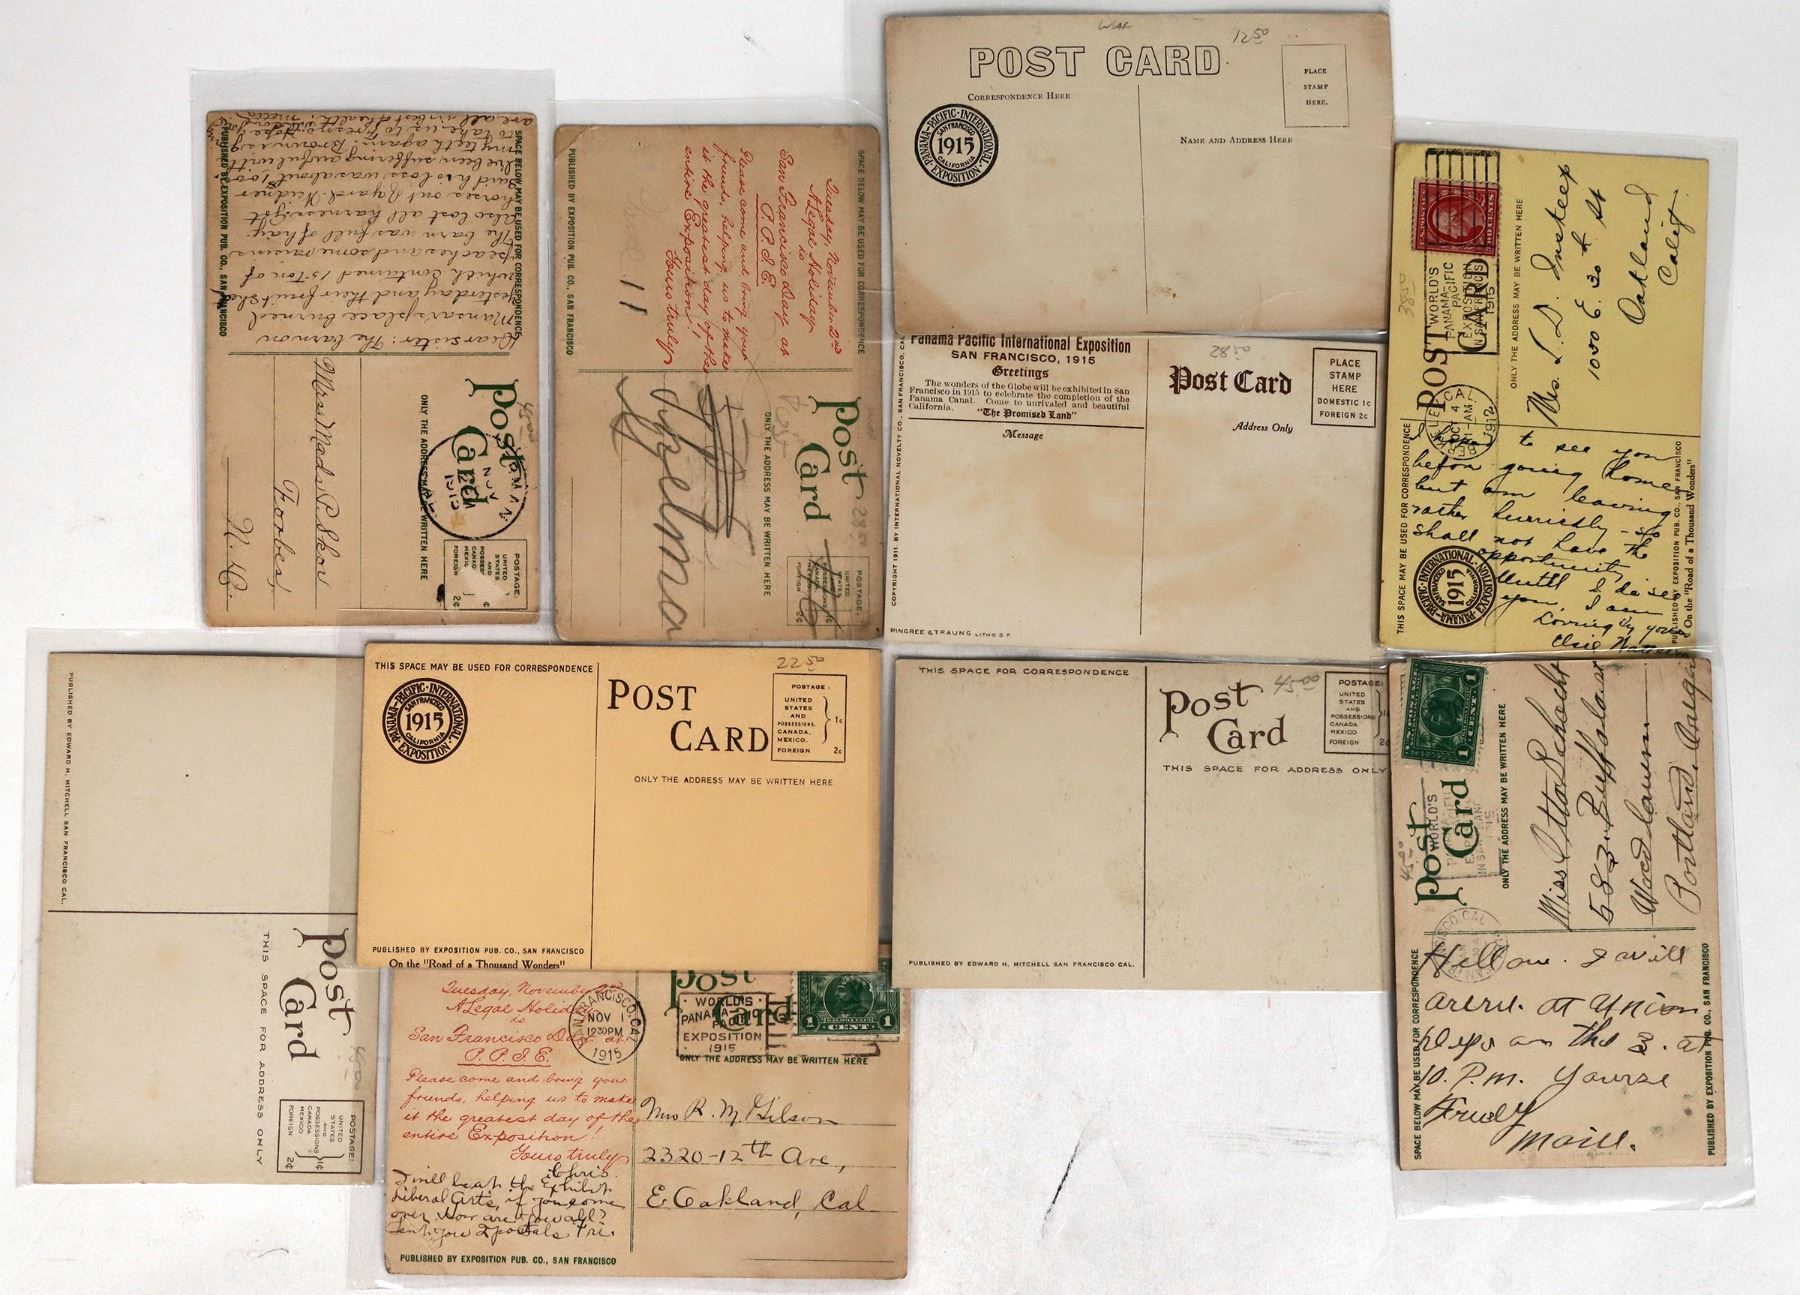 War
12.50
POST CARD
PLACE
STAMP
HERE.
CORRESPONDENCE HERE
PANAMA-PACIFIC-INTERNATIONAL EXPOSITION
SAN FRANCISCO
1915
CALIFORNIA
NAME AND ADDRESS HERE
SPACE BELOW MAY BE USED FOR CORRESPONDENCE
PUBLISHED BY EXPOSITION PUB. CO., SAN FRANCISCO
Dear sister: The barn on
Mansar's place burned
yesterday and their fruit shed
which contained 15 ton of
peaches and some raisins
The barn was full of hay.
also lost all harness, eight
horses out
said his loss was about
I've been suffering awful with
my teeth again.
to take us to Fresno. Hope you
are all in best of health.
Post
Card
ONLY THE ADDRESS MAY BE WRITTEN HERE
NOV
1915
POSTAGE:
UNITED
STATES
AND
POSSESS
CANADA
MEXIC
FOREIGN 2¢
Forbes,
N. D.
SPACE BELOW MAY BE USED FOR CORRESPONDENCE
PUBLISHED BY EXPOSITION PUB. CO., SAN FRANCISCO
Tuesday, November 2nd
A Legal Holiday
is
San Francisco Day at
P. P. I. E.
Please come and bring your
friends, helping us to make
it the greatest day of the
entire Exposition!
Yours truly,
11
Post
Card
ONLY THE ADDRESS MAY BE WRITTEN HERE
POSTAGE:
UNITED
STATES
FOREIGN 2¢
Panama Pacific International Exposition
SAN FRANCISCO, 1915
Greetings
The wonders of the Globe will be exhibited in San
Francisco in 1915 to celebrate the completion of the
Panama Canal. Come to unrivaled and beautiful
California.
"The Promised Land"
Message
28.50
Post Card
Address Only
PLACE
STAMP
HERE
DOMESTIC 1c
FOREIGN 2c
COPYRIGHT 1911. BY INTERNATIONAL NOVELTY CO., SAN FRANCISCO, CAL
PINGREE & TRAUNG LITHO S.F.
POST
CARD
WORLD'S
PANAMA-
PACIFIC
EXPOSITION
IN SAN FRANCISCO
1915
BERKELEY, CAL.
OCT 4
AM
1912
ONLY THE ADDRESS MAY BE WRITTEN HERE
Mrs. L. D. Inskeep
1050 E. 30th St
Oakland
Calif
THIS SPACE MAY BE USED FOR CORRESPONDENCE
I hope to see you
before going home
but am leaving
rather hurriedly - so
shall not have the
opportunity,
Until I do see
you, I am
Lovingly yours
Elsie
PANAMA-PACIFIC-INTERNATIONAL EXPOSITION
SAN FRANCISCO
1915
CALIFORNIA
PUBLISHED BY EXPOSITION PUB. CO. SAN FRANCISCO
On the "Road of a Thousand Wonders"
PUBLISHED BY EDWARD H. MITCHELL SAN FRANCISCO CAL.
Post
Card
THIS SPACE FOR ADDRESS ONLY
POSTAGE:
UNITED
STATES
AND
POSSESSIONS 1¢
CANADA
MEXICO
FOREIGN 2¢
THIS SPACE MAY BE USED FOR CORRESPONDENCE
PANAMA-PACIFIC-INTERNATIONAL EXPOSITION
SAN FRANCISCO
1915
CALIFORNIA
22.50
POST
CARD
POSTAGE:
UNITED
STATES
AND
POSSESSIONS,
CANADA,
MEXICO.
1c
FOREIGN 2c
ONLY THE ADDRESS MAY BE WRITTEN HERE
PUBLISHED BY EXPOSITION PUB. CO., SAN FRANCISCO
On the "Road of a Thousand Wonders"
THIS SPACE FOR CORRESPONDENCE
45.00
Post
Card
POSTAGE:
UNITED
STATES
AND
POSSESSIONS
CANADA
MEXICO
FOREIGN 2c
THIS SPACE FOR ADDRESS ONLY
PUBLISHED BY EDWARD H. MITCHELL SAN FRANCISCO CAL.
Post
Card
WORLD'S
PANAMA-
PACIFIC
EXPOSITION
1915
SAN FRANCISCO, CAL.
NOV 1
12 30 PM
1915
1 CENT 1
ONLY THE ADDRESS MAY BE WRITTEN HERE
Tuesday, November 2nd
A Legal Holiday
is
San Francisco Day at
P. P. I. E.
Please come and bring your
friends, helping us to make
it the greatest day of the
entire Exposition!
Yours truly,
Chris.
I will be at the Exhibit
Liberal Arts, if you come
over. How are you all?
Sent you 2 postals Fri.
Mrs R. M. Gilson
2320-12th Ave,
E. Oakland, Cal
PUBLISHED BY EXPOSITION PUB. CO., SAN FRANCISCO
45.00
Post
Card
WORLD'S
IN SAN FRAN
1915
ONLY THE ADDRESS MAY BE WRITTEN HERE
Miss Otto Schacht
583 Buffalo St
Woodlawn
Portland, Oregon
SPACE BELOW MAY BE USED FOR CORRESPONDENCE
Hello. I will
arive at Union
Depo on the 3. at
10. P.M. Yourse
Trudy
Maill.
PUBLISHED BY EXPOSITION PUB. CO., SAN FRANCISCO